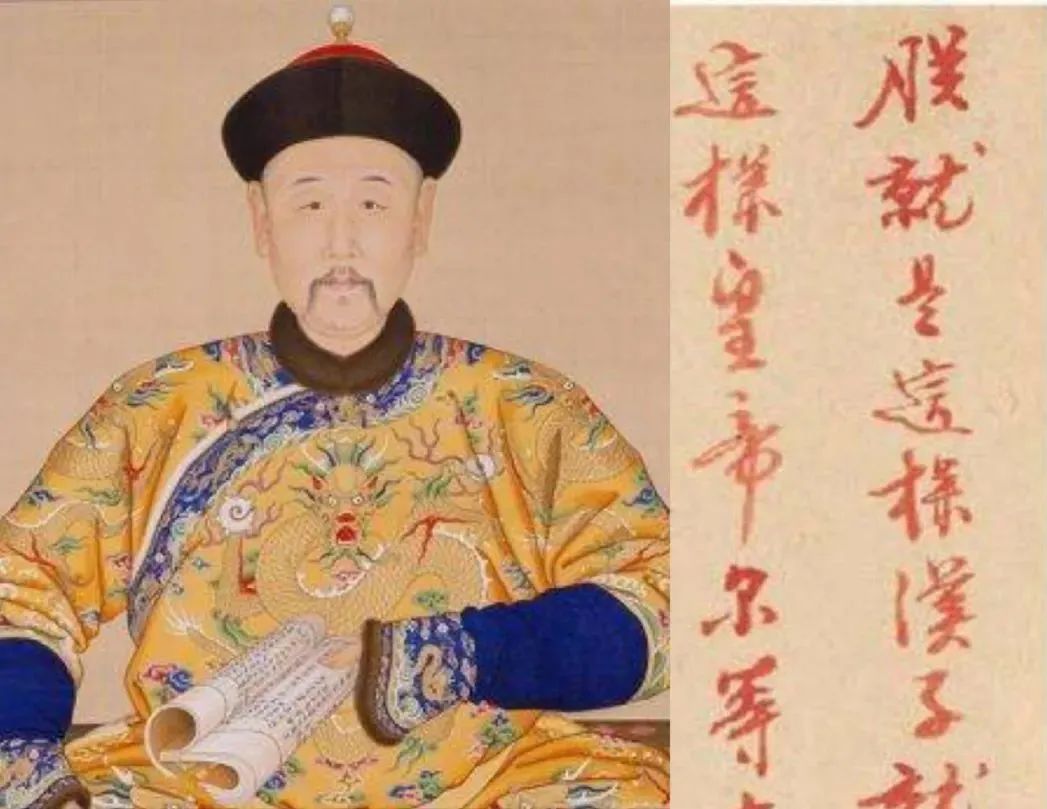 朕就是這樣漢子就
這樣皇帝尔等